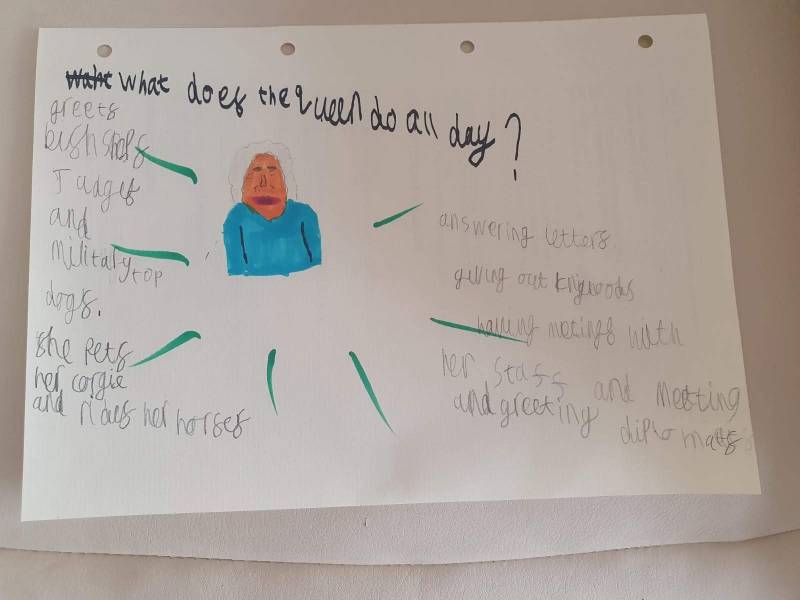 waht what does the queen do all day?
greets
bishshops
Judges
and
military top
dogs.
She pets
her corgie
and rides her horses
answering letters
giving out knigwoods
having metings with
her staff and meeting
and greeting diplomats